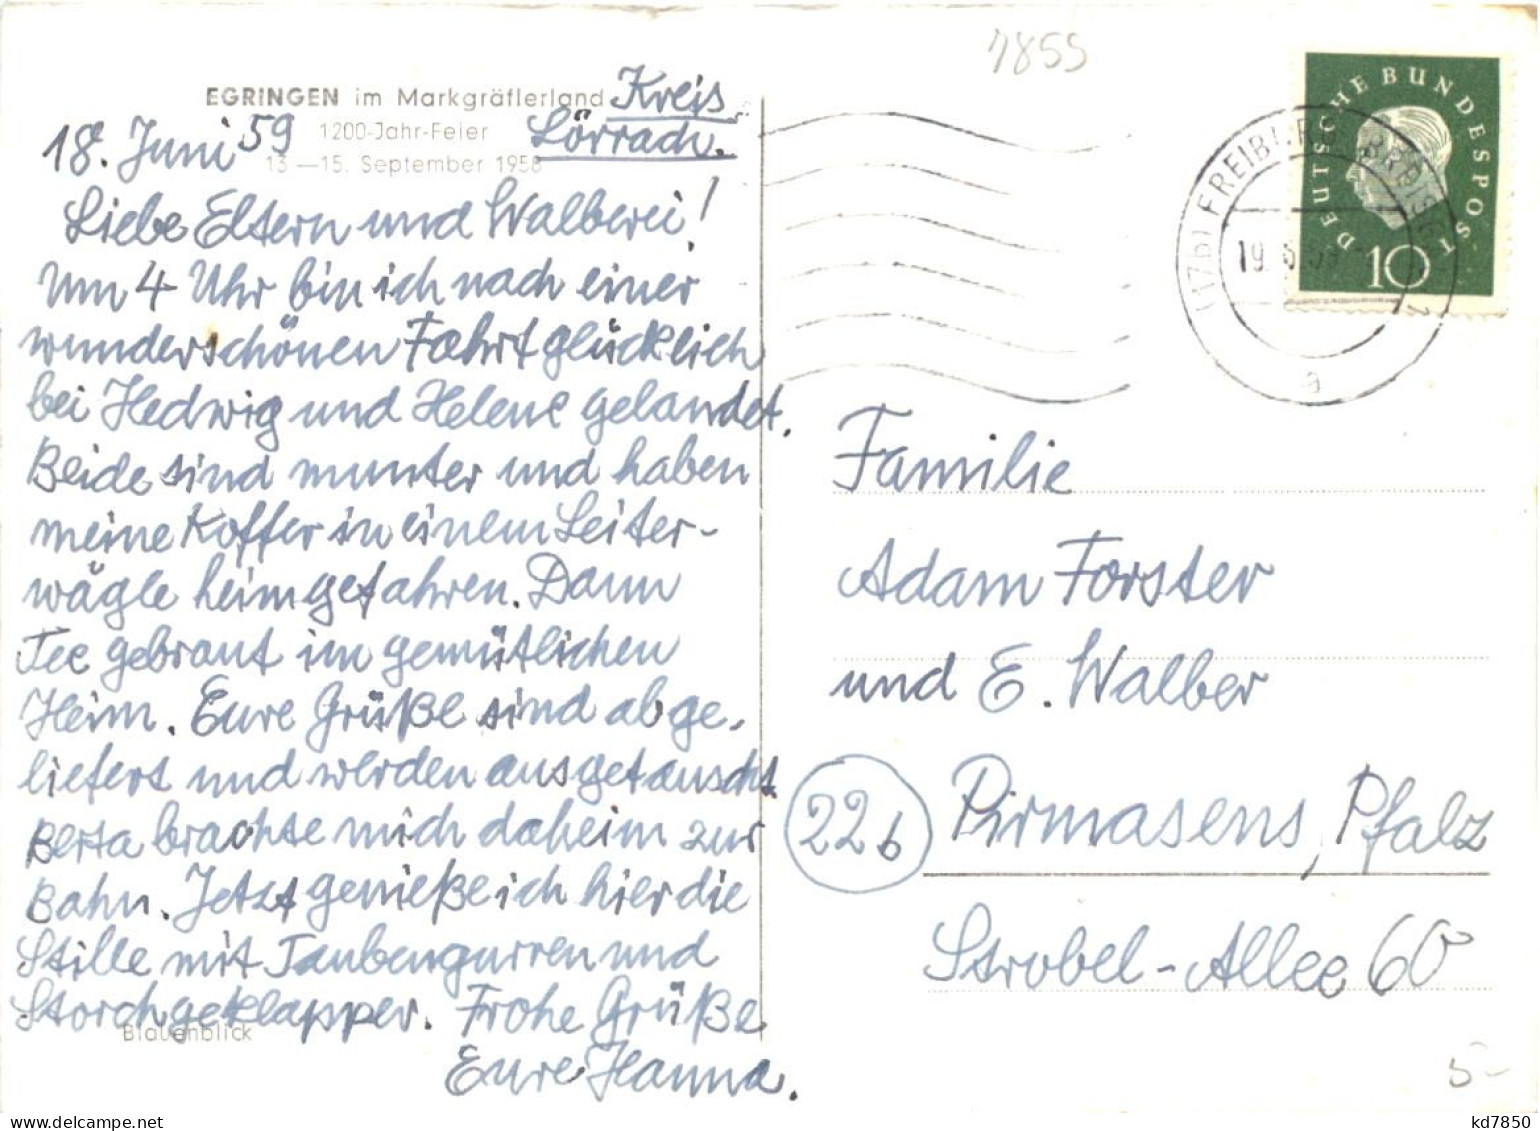 7855
EGRINGEN im Markgräflerland Kreis
18. Juni 59 1200-Jahr-Feier Lörrach.
13.—15. September 1958
Liebe Eltern und Walberei!
Um 4 Uhr bin ich nach einer
wunderschönen Fahrt glücklich
bei Hedwig und Helene gelandet.
Beide sind munter und haben
meine Koffer in einem Leiter-
wägle heimgefahren. Dann
Tee gebraut im gemütlichen
Heim. Eure Grüße sind abge-
liefert und werden ausgetauscht.
Berta brachte mich daheim zur
Bahn. Jetzt genieße ich hier die
Stille mit Taubengurren und
Storchgeklapper. Frohe Grüße
Eure Hanna.
Blauenblick
DEUTSCHE BUNDESPOST
10
(17b) FREIBURG BREISGAU 2
19.6.59
a
Familie
Adam Forster
und E. Walber
22b Pirmasens, Pfalz
Strobel-Allee 60
5-
kd7850